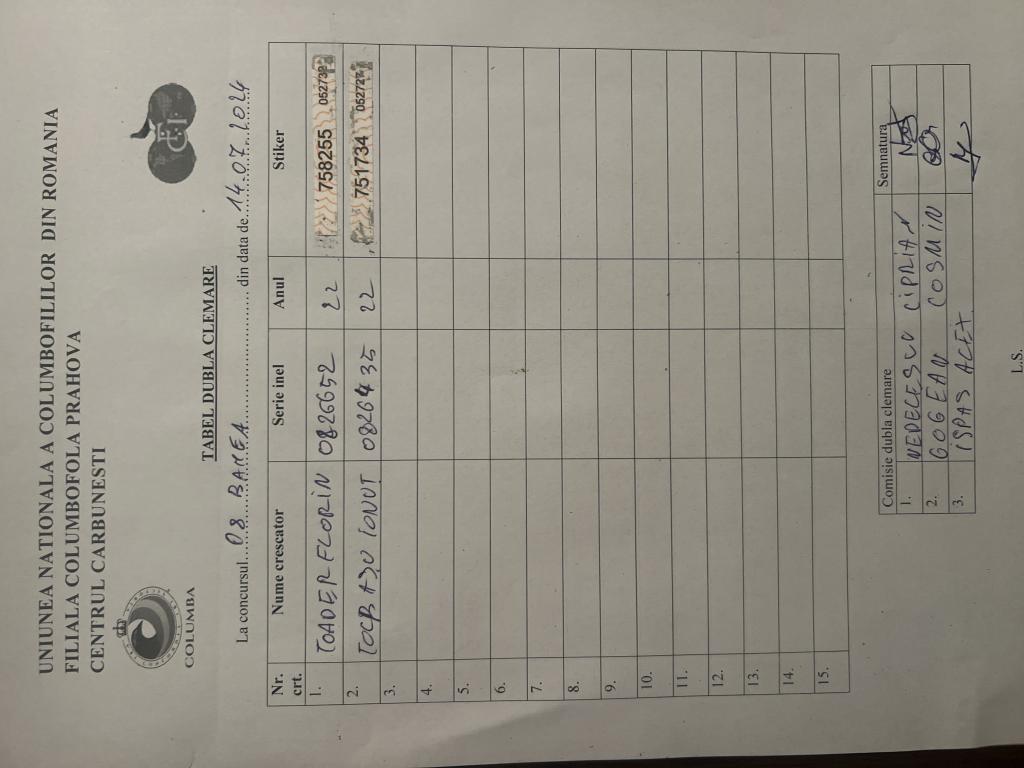 UNIUNEA NATIONALA A COLUMBOFILILOR DIN ROMANIA
FILIALA COLUMBOFOLA PRAHOVA
CENTRUL CARBUNESTI
COLUMBA
TABEL DUBLA CLEMARE
La concursul.....08 BAMEA..... din data de...14.07.2024
Nr. crt. Nume crescator Serie inel Anul Stiker
1. TOADER FLORIN 0826652 22 758255
2. IONUT 0826435 22 751734 052727
3.
4.
5.
6.
7.
8.
9.
10.
11.
12.
13.
14.
15.
Comisie dubla clemare Semnatura
1. NEDELESCU CIPRIAN
2. GOGEAN COSMIN
3. ISPAS
L.S.